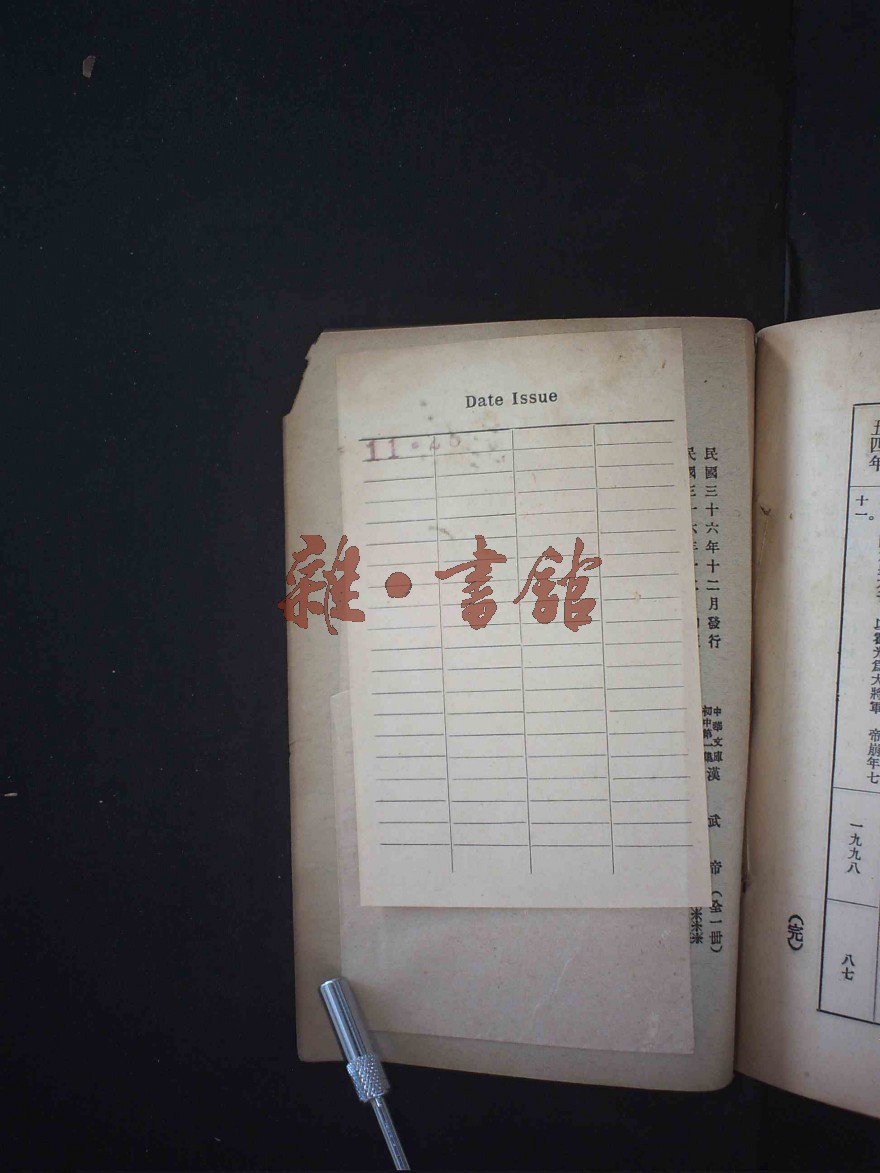 Date Issue
11
雜·書館
民國三十六年十二月發行
中華文庫
初中第一集
漢武帝（全一冊）
五四年
十一。
以霍光爲大將軍　帝崩年七
一九九八
八七
（完）